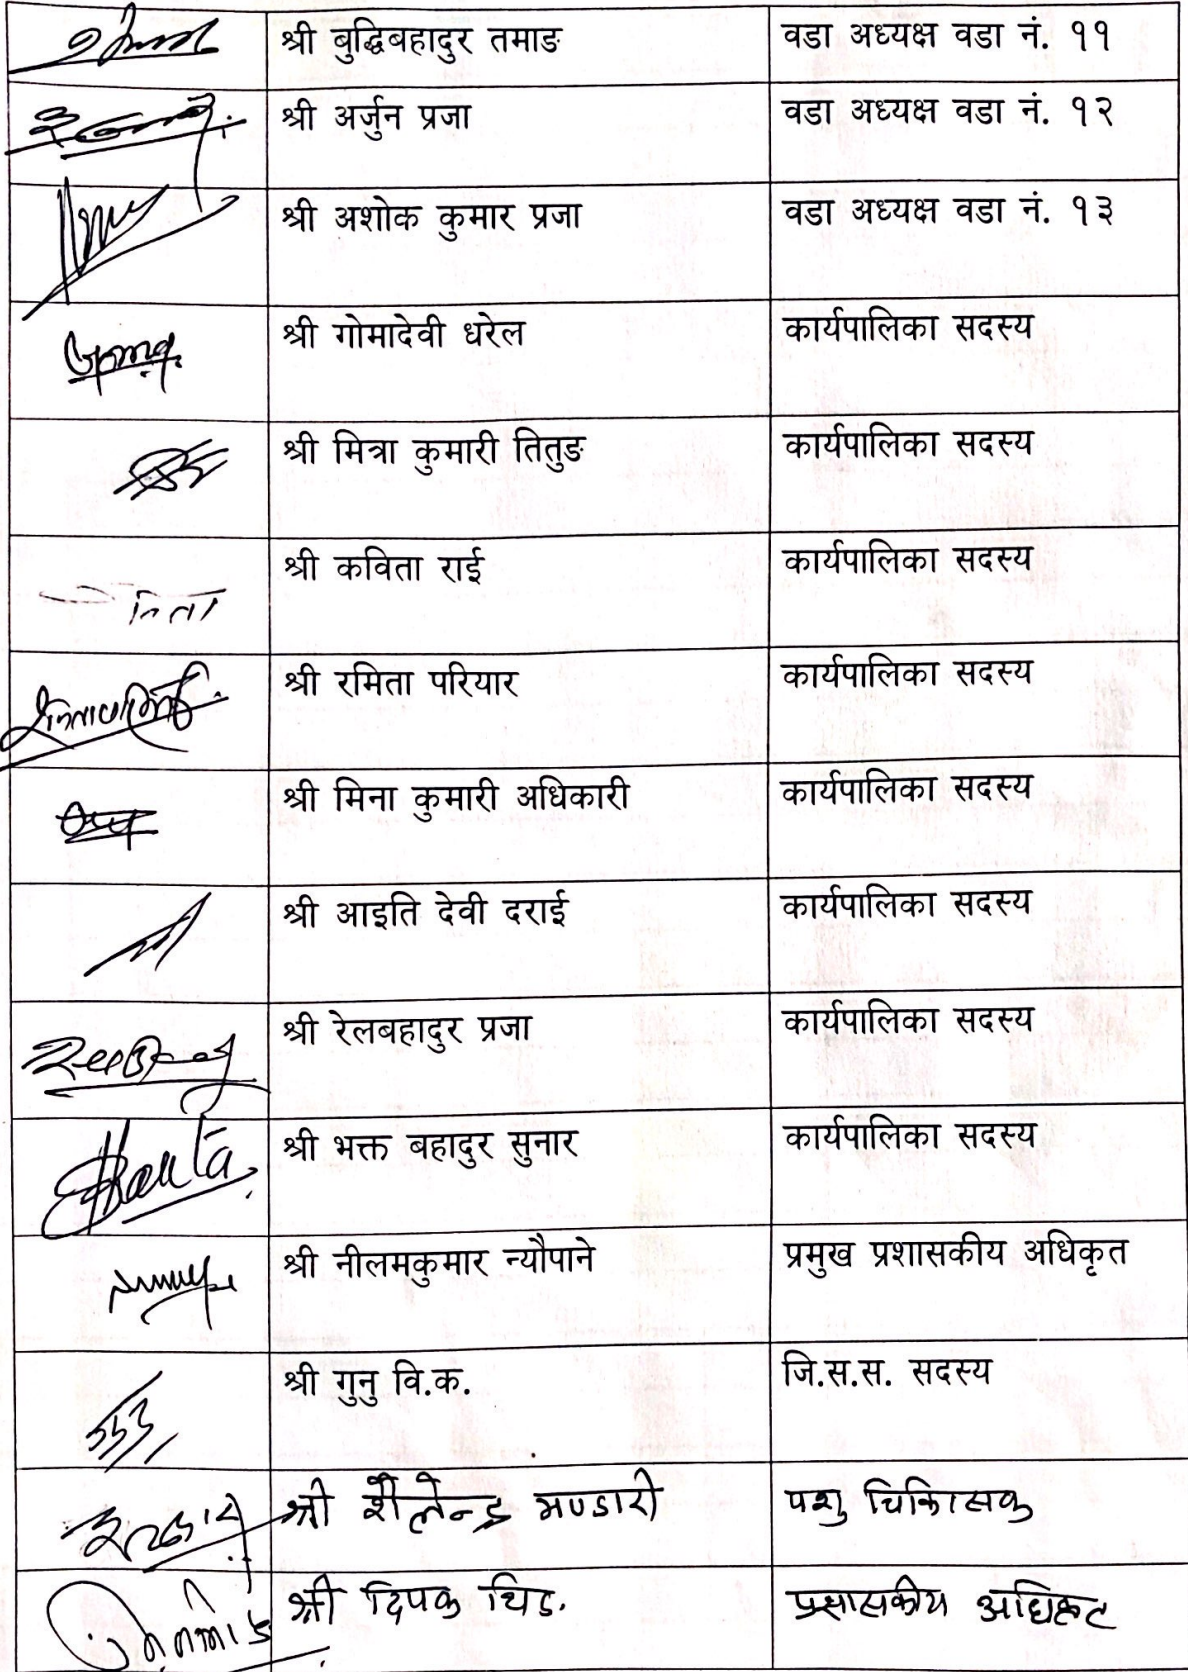 श्री बुद्धिबहादुर तमाङ वडा अध्यक्ष वडा नं. ११
श्री अर्जुन प्रजा वडा अध्यक्ष वडा नं. १२
श्री अशोक कुमार प्रजा वडा अध्यक्ष वडा नं. १३
श्री गोमादेवी धरेल कार्यपालिका सदस्य
श्री मित्रा कुमारी तितुङ कार्यपालिका सदस्य
श्री कविता राई कार्यपालिका सदस्य
श्री रमिता परियार कार्यपालिका सदस्य
श्री मिना कुमारी अधिकारी कार्यपालिका सदस्य
श्री आइति देवी दराई कार्यपालिका सदस्य
श्री रेलबहादुर प्रजा कार्यपालिका सदस्य
श्री भक्त बहादुर सुनार कार्यपालिका सदस्य
श्री नीलमकुमार न्यौपाने प्रमुख प्रशासकीय अधिकृत
श्री गुनु वि.क. जि.स.स. सदस्य
श्री शैलेन्द्र भण्डारी पशु
श्री दिपक अधिकृत